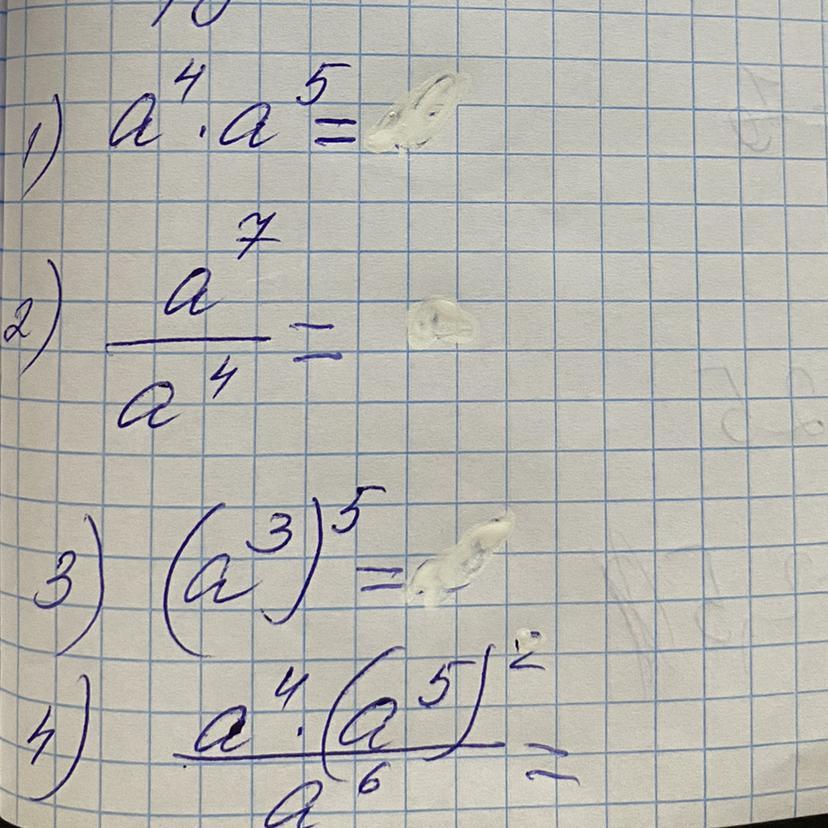 1) a⁴ · a⁵ =
2) a⁷ / a⁴ =
3) (a³)⁵ =
4) a⁴ · (a⁵)² / a⁶ =